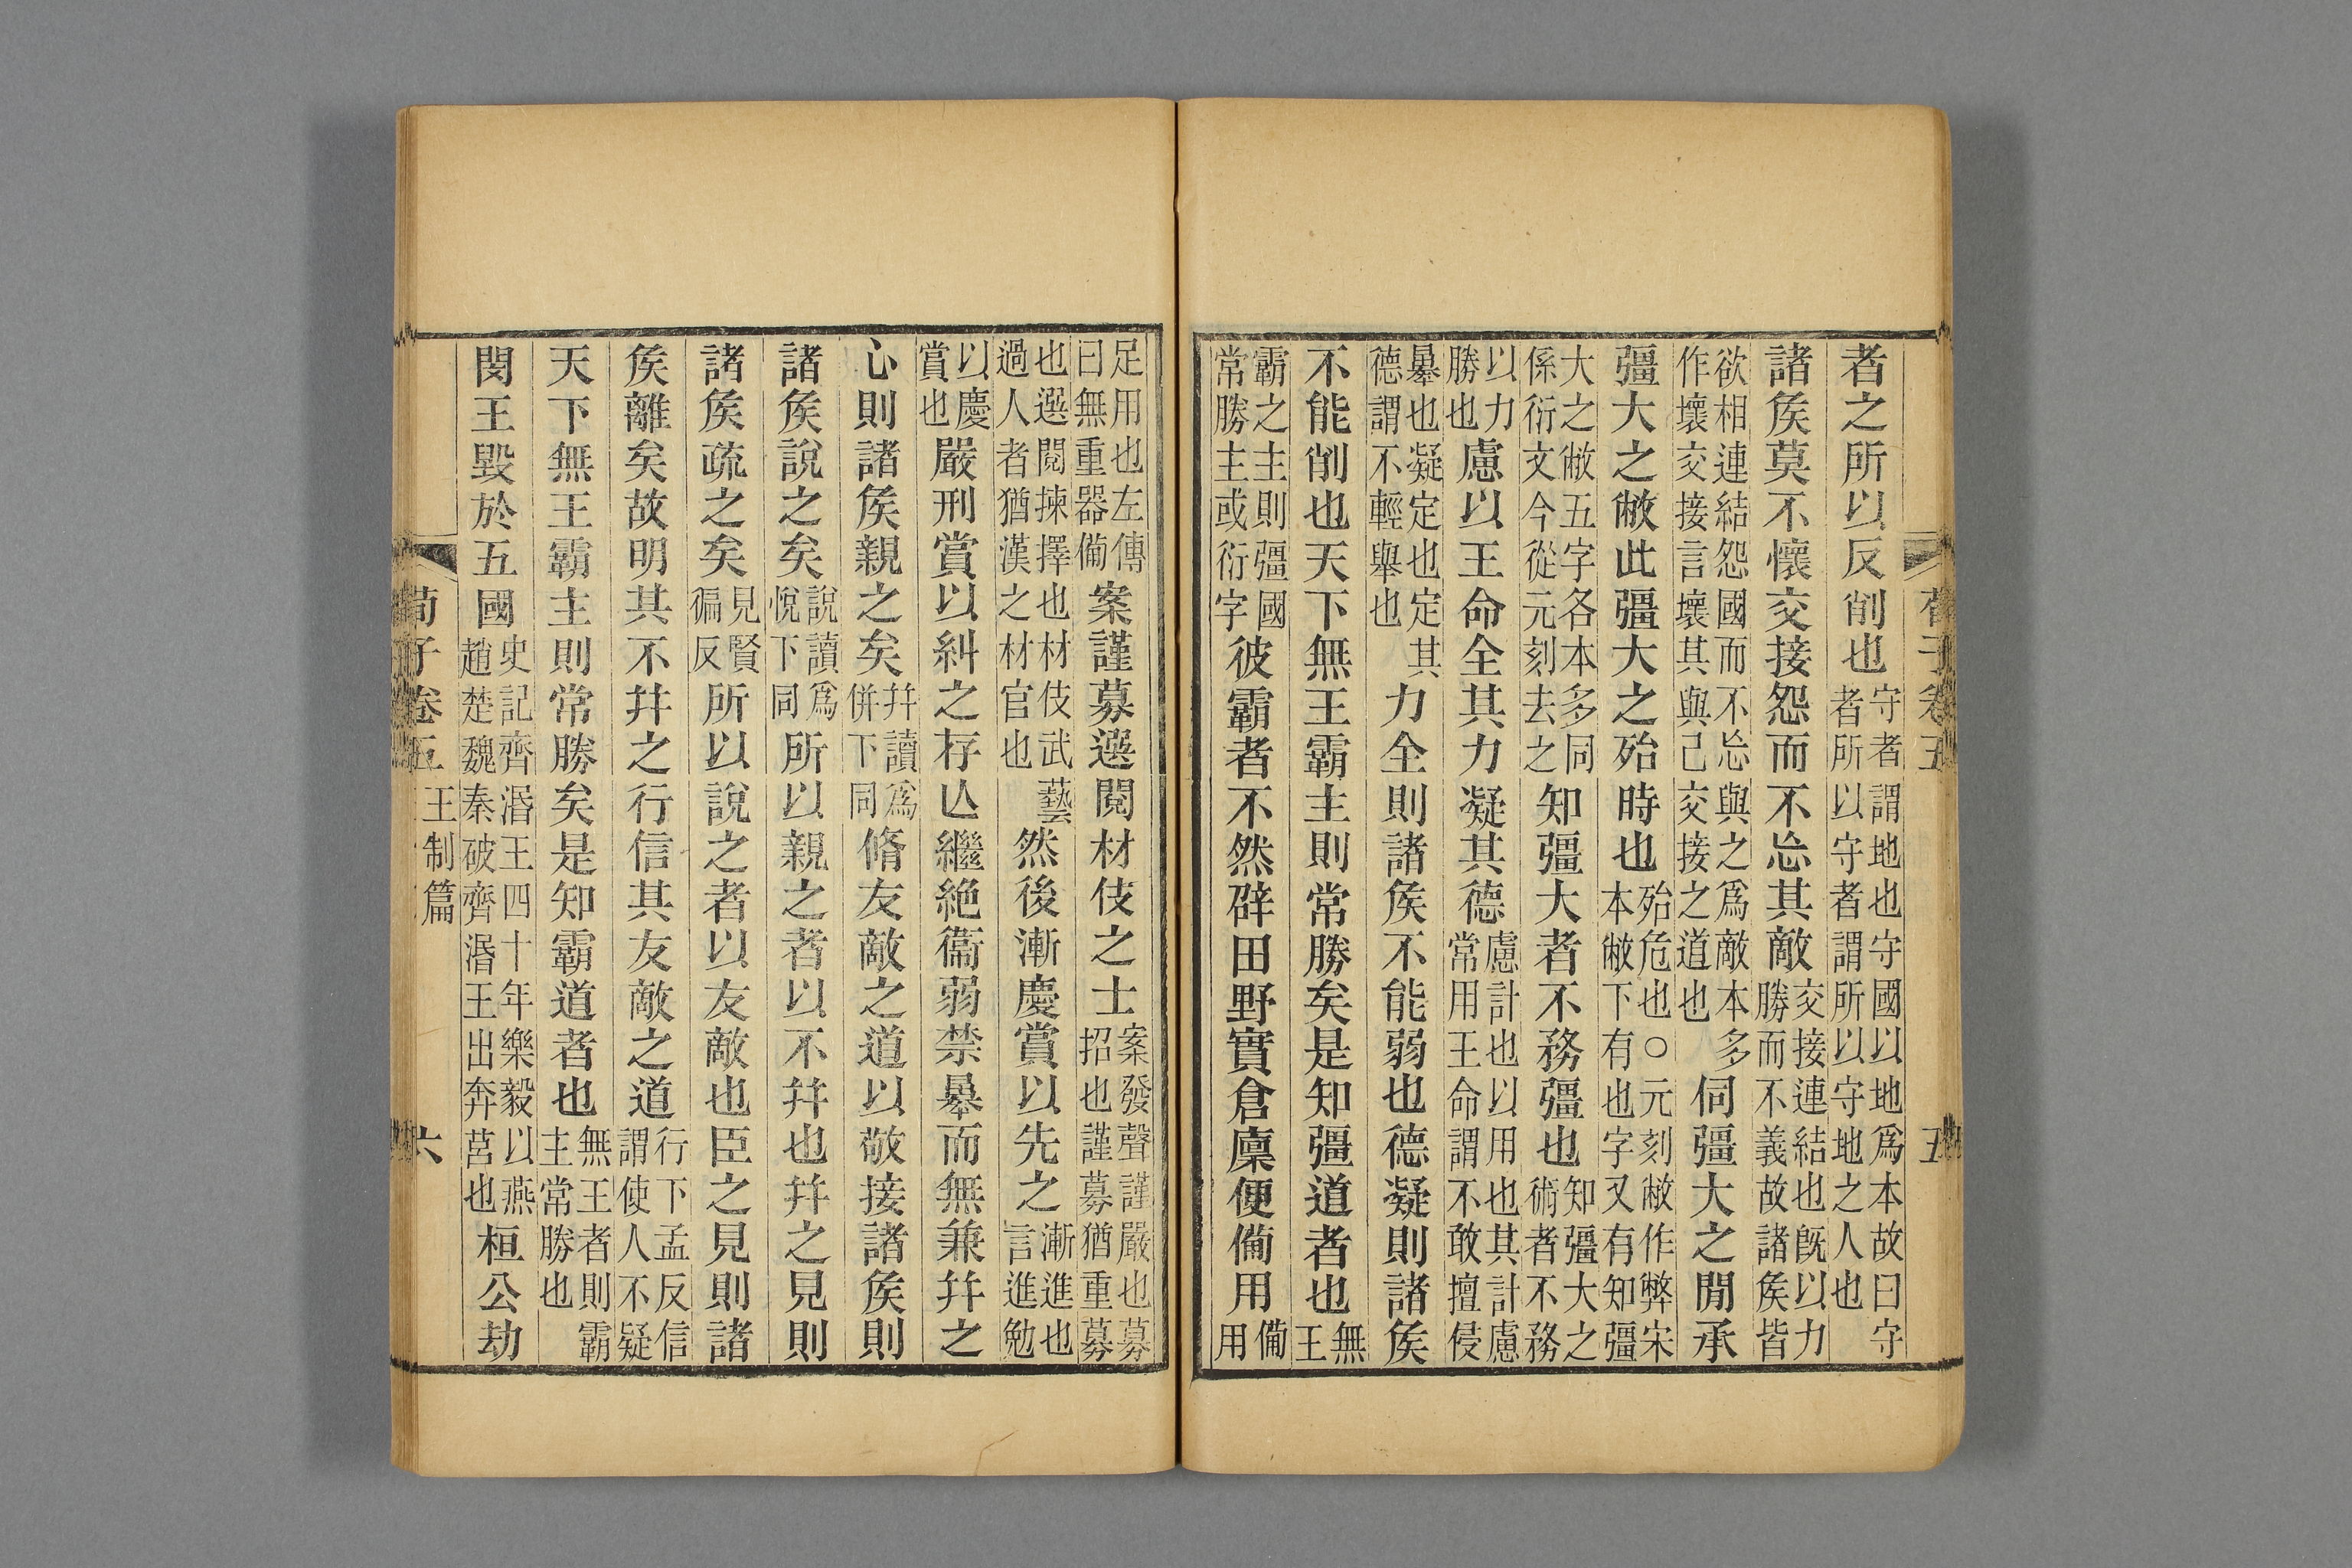 荀子卷五 五
者之所以反削也守者謂地也守國以地爲本故曰守者所以守者謂所以守地之人也
諸矦莫不懷交接怨而不忘其敵交接連結也旣以力勝而不義故諸矦皆
欲相連結怨國而不忘與之爲敵本多作壞交接言壞其與己交接之道也伺彊大之閒承
彊大之敝此彊大之殆時也殆危也○元刻敝作弊宋本敝下有也字又有知彊
大之敝五字各本多同係衍文今從元刻去之知彊大者不務彊也知彊大之術者不務
以力勝也慮以王命全其力凝其德慮計也以用也其計慮常用王命謂不敢擅侵
暴也凝定也定其德謂不輕舉也力全則諸矦不能弱也德凝則諸矦
不能削也天下無王霸主則常勝矣是知彊道者也無王
霸之主則彊國常勝主或衍字彼霸者不然辟田野實倉廩便備用備用
足用也左傳曰無重器備案謹募選閱材伎之士案發聲謹嚴也募招也謹募猶重募
也選閱揀擇也材伎武藝過人者猶漢之材官也然後漸慶賞以先之漸進也言進勉
以慶賞也嚴刑賞以糾之存亾繼絕衞弱禁暴而無兼幷之
心則諸矦親之矣幷讀爲併下同脩友敵之道以敬接諸矦則
諸矦說之矣說讀爲悅下同所以親之者以不幷也幷之見則
諸矦疏之矣見賢徧反所以說之者以友敵也臣之見則諸
矦離矣故明其不幷之行信其友敵之道行下孟反信謂使人不疑
天下無王霸主則常勝矣是知霸道者也無王者則霸主常勝也
閔王毀於五國史記齊湣王四十年樂毅以燕趙楚魏秦破齊湣王出奔莒也桓公劫
荀子卷五 王制篇 六